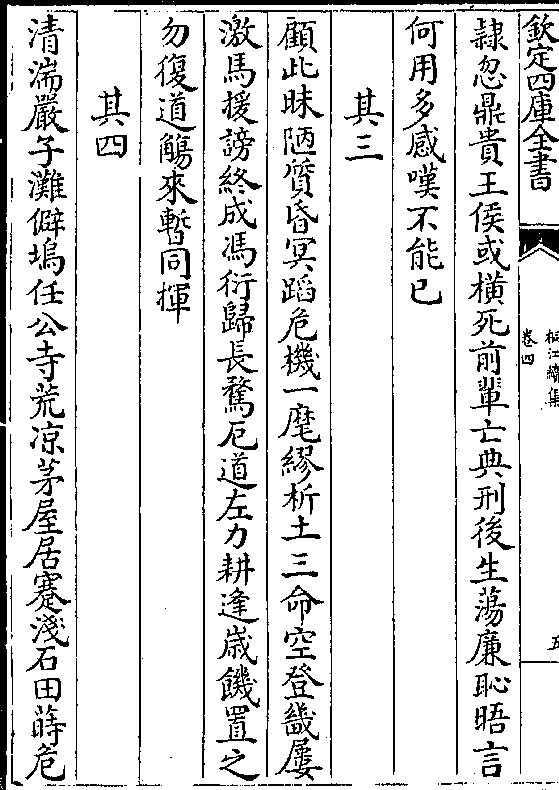 欽定四庫全書
桐江續集
卷四
五
隸忽鼎貴王侯或横死前輩亡典刑後生蕩廉恥晤言
何用多感嘆不能已
其三
顧此昧陋質昏冥蹈危機一麾繆析土三命空登畿屢
激馬援謗終成馮衍歸長騖厄道左力耕逢歲饑置之
勿復道觴來暫同揮
其四
清湍嚴子灘僻塢任公寺荒凉茅屋居蹇淺石田蒔危